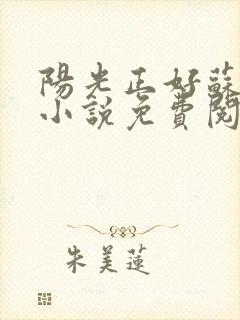 陽光正好蘇
小說免費閱
朱美蓮